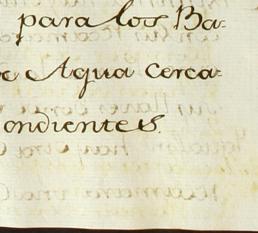 para los Ba=
Agua cerca=
ondientes.